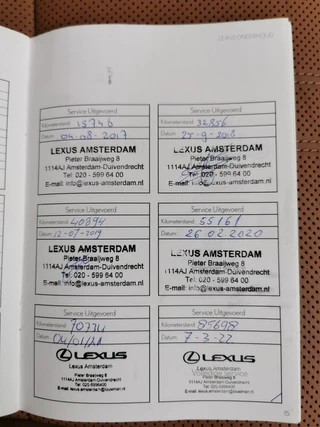 LEXUS ONDERHOUD
Service Uitgevoerd
Kilometerstand 15746
Datum: 04-08-2017
LEXUS AMSTERDAM
Pieter Braaijweg 8
1114AJ Amsterdam-Duivendrecht
Tel: 020 - 599 64 00
E-mail: info@lexus-amsterdam.nl
Service Uitgevoerd
Kilometerstand 32856
Datum: 25-9-2018
LEXUS AMSTERDAM
Pieter Braaijweg 8
1114AJ Amsterdam-Duivendrecht
Tel: 020 - 599 64 00
E-mail: info@lexus-amsterdam.nl
Service Uitgevoerd
Kilometerstand 40894
Datum: 12-07-2019
LEXUS AMSTERDAM
Pieter Braaijweg 8
1114AJ Amsterdam-Duivendrecht
Tel: 020 - 599 64 00
E-mail: info@lexus-amsterdam.nl
Service Uitgevoerd
Kilometerstand 55161
Datum: 26 02 2020
LEXUS AMSTERDAM
Pieter Braaijweg 8
1114AJ Amsterdam-Duivendrecht
Tel: 020 - 599 64 00
E-mail: info@lexus-amsterdam.nl
Service Uitgevoerd
Kilometerstand
Datum:
LEXUS
Lexus Amsterdam
Pieter Braaijweg 8
1114AJ Amsterdam-Duivendrecht
Tel: 020 5996400
Service Uitgevoerd
Kilometerstand 85698
Datum: 7-3-22
LEXUS
Lexus Amsterdam
Volledige service
Pieter Braaijweg 8
1114AJ Amsterdam-Duivendrecht
Tel: 020 5996400
15